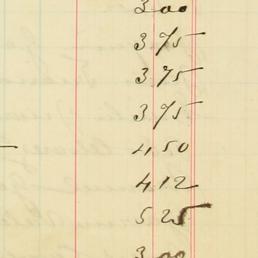 3 00
3 75
3 75
3 75
4 50
4 12
5 25
3 00